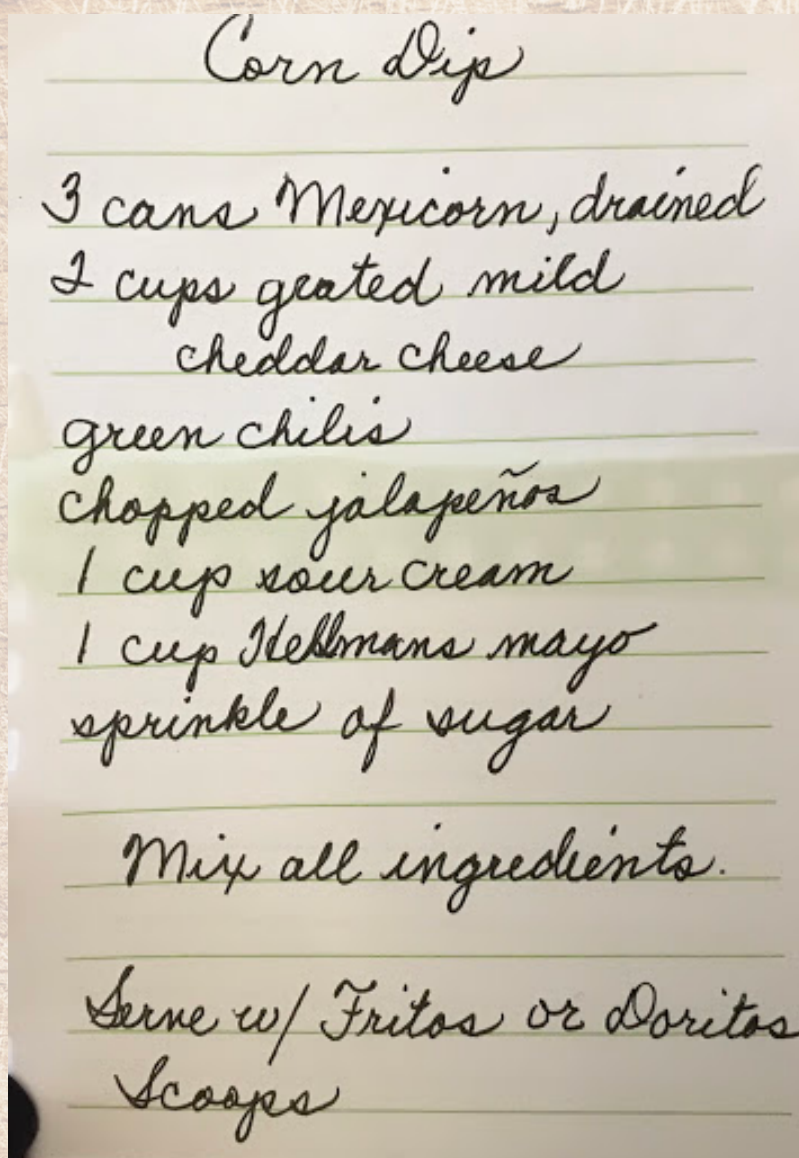 Corn Dip
3 cans Mexicorn, drained
2 cups grated mild
cheddar cheese
green chilis
chopped jalapeños
1 cup sour cream
1 cup Hellmans mayo
sprinkle of sugar
Mix all ingredients.
Serve w/ Fritos or Doritos
Scoops